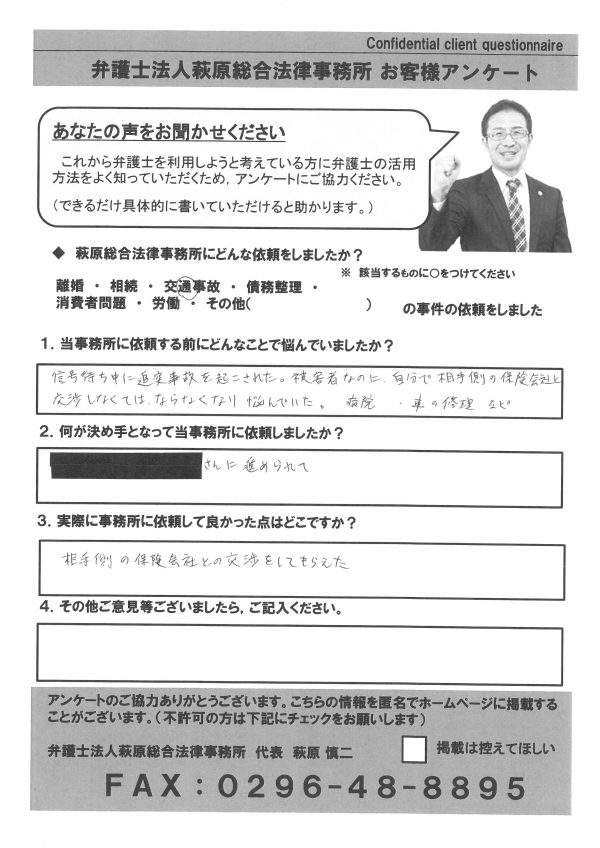 Confidential client questionnaire
弁護士法人萩原総合法律事務所 お客様アンケート
あなたの声をお聞かせください
これから弁護士を利用しようと考えている方に弁護士の活用
方法をよく知っていただくため，アンケートにご協力ください。
（できるだけ具体的に書いていただけると助かります。）
◆ 萩原総合法律事務所にどんな依頼をしましたか？
※ 該当するものに○をつけてください
離婚 ・ 相続 ・ 交通事故 ・ 債務整理 ・
消費者問題 ・ 労働 ・ その他( ) の事件の依頼をしました
１．当事務所に依頼する前にどんなことで悩んでいましたか？
信号待ち中に追突事故を起こされた。被害者なのに、自分で相手側の保険会社と
交渉しなくては、ならなくなり悩んでいた。 病院 ・車の修理 など
２．何が決め手となって当事務所に依頼しましたか？
さんに進められて
３．実際に事務所に依頼して良かった点はどこですか？
相手側の保険会社との交渉をしてもらえた
４．その他ご意見等ございましたら，ご記入ください。
アンケートのご協力ありがとうございます。こちらの情報を匿名でホームページに掲載する
ことがございます。（不許可の方は下記にチェックをお願いします）
弁護士法人萩原総合法律事務所 代表 萩原 慎二
掲載は控えてほしい
ＦＡＸ：０２９６-４８-８８９５